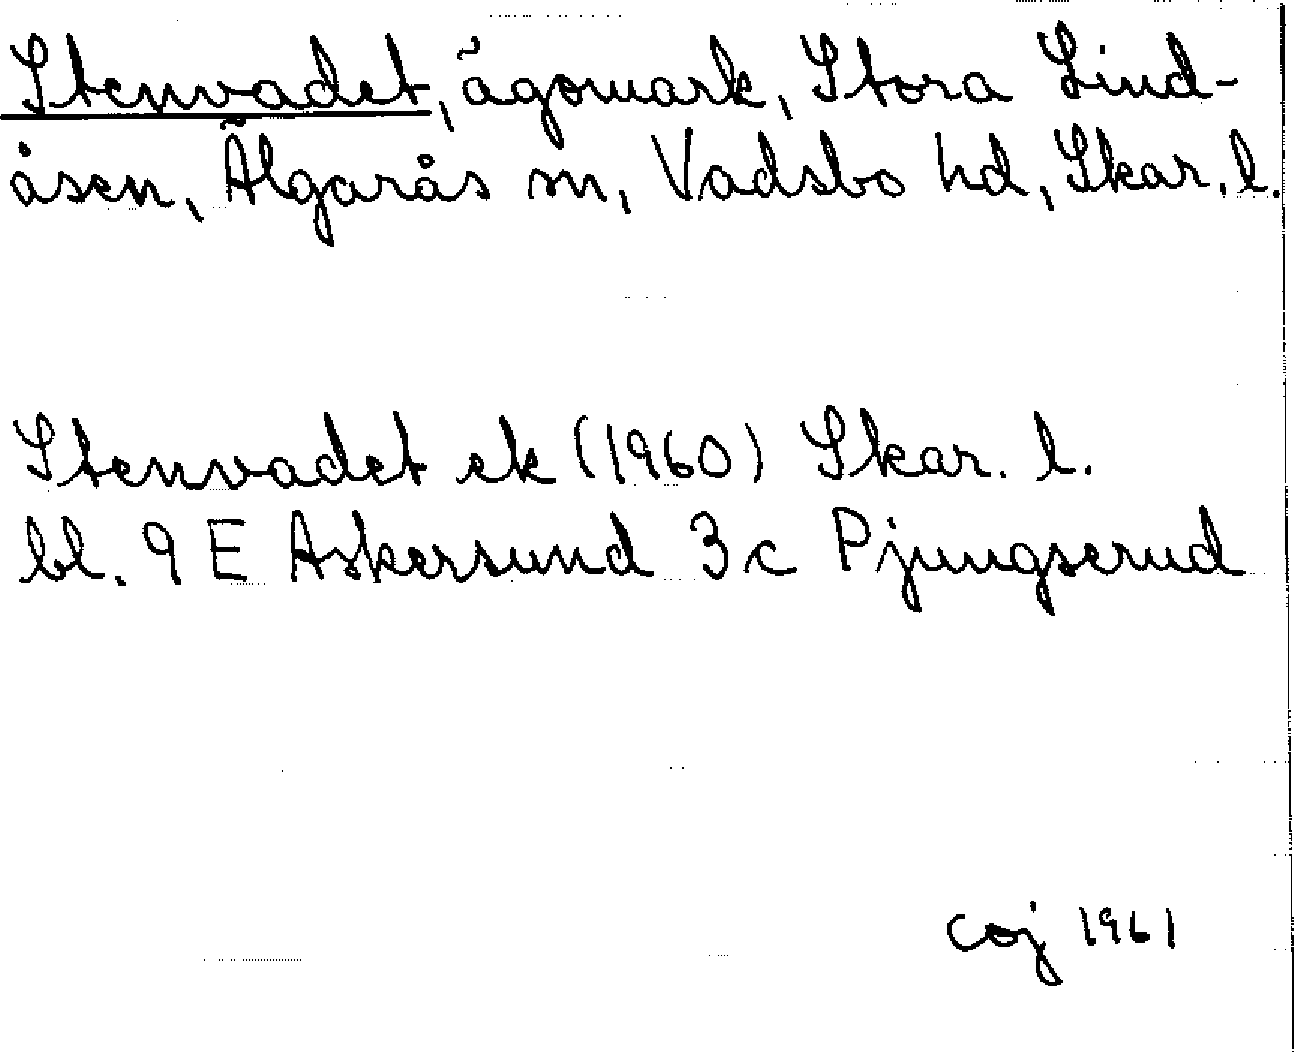 Stenvadet, ägomark, Stora Lind-
åsen, Älgarås sn, Vadsbo hd, Skar. l.
Stenvadet ek (1960) Skar. l.
bl. 9 E Askersund 3 c Pjungserud
coj 1961